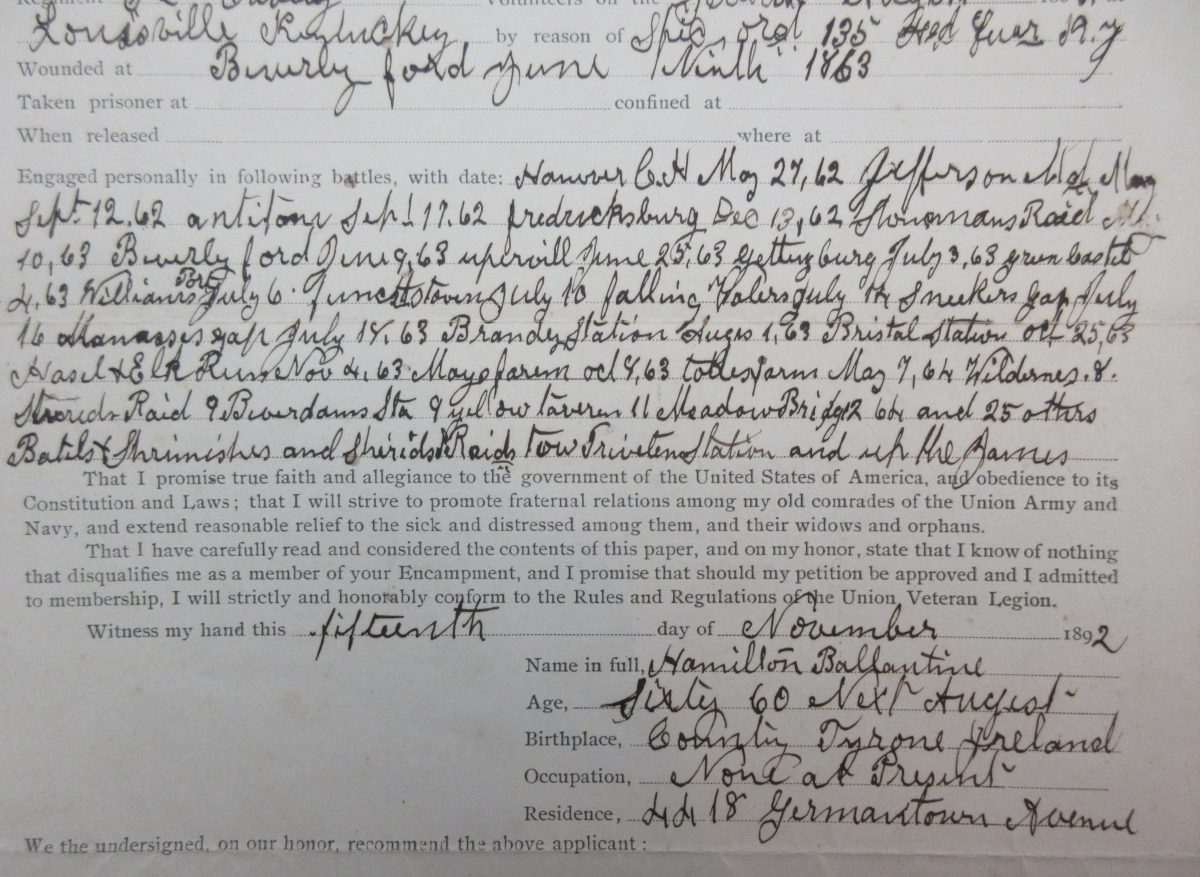 Louisville Kentuckey by reason of Spic ord 135 Hed Quar
Wounded at Beverly ford June Ninth 1863
Taken prisoner at confined at
When released where at
Engaged personally in following battles, with date: Hanover C.H May 27,62 Jefferson Md
Sept 12.62 antitom Sept 17.62 fredricksburg Dec 13,62 Stounmans Raid
10,63 Beverly ford June 9,63 upervill June 25,63 Gettysburg July 3,63 grun Castel
4,63 Williams Prt July 6 funckstown July 10 falling Waters July 14 Sneekers gap July
16 Manasses gap July 18.63 Brandy Station Auges 1,63 Bristal Station oct 25,63
Hasel & Elk Run Nov 4,63 oct 8,63 todes farm May 7,64 Wildernes .8.
Raid 9 Beverdams Sta 9 yellow taveren 11 Meadow Bridg 12 64 and 25 others
Batels & Shrimishes and Raids tow Triveten Station and up the James
That I promise true faith and allegiance to the government of the United States of America, and obedience to its
Constitution and Laws; that I will strive to promote fraternal relations among my old comrades of the Union Army and
Navy, and extend reasonable relief to the sick and distressed among them, and their widows and orphans.
That I have carefully read and considered the contents of this paper, and on my honor, state that I know of nothing
that disqualifies me as a member of your Encampment, and I promise that should my petition be approved and I admitted
to membership, I will strictly and honorably conform to the Rules and Regulations of the Union Veteran Legion.
Witness my hand this fifteenth day of November 1892
Name in full, Hamilton Ballantine
Age, Sixty 60 Next August
Birthplace, County Tyrone Ireland
Occupation, None at Present
Residence, 4418 Germantown Avenue
We the undersigned, on our honor, recommend the above applicant: